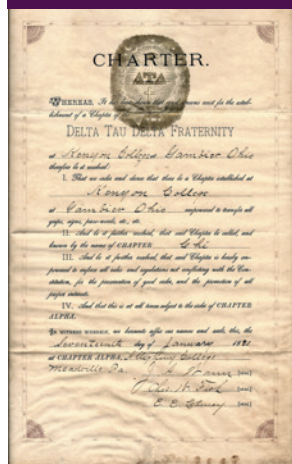 CHARTER.
ΔΤΔ
WHEREAS, It has been shown that good reasons exist for the estab-
lishment of a Chapter of
DELTA TAU DELTA FRATERNITY
at Kenyon College Gambier Ohio
therefore be it resolved:
I. That we order and deem that there be a Chapter established at
Kenyon College
at Gambier Ohio empowered to transfer all
grips, signs, pass-words, etc., etc.
II. And be it further resolved, that said Chapter be called, and
known by the name of CHAPTER Chi
III. And be it further resolved, that said Chapter is hereby em-
powered to enforce all rules and regulations not conflicting with the Con-
stitution, for the preservation of good order, and the promotion of all
proper interests.
IV. And that this is at all times subject to the order of CHAPTER
ALPHA.
IN WITNESS WHEREOF, we hereunto affix our names and seals, this, the
Seventeenth day of January
at CHAPTER ALPHA, Allegheny College
Meadville Pa.